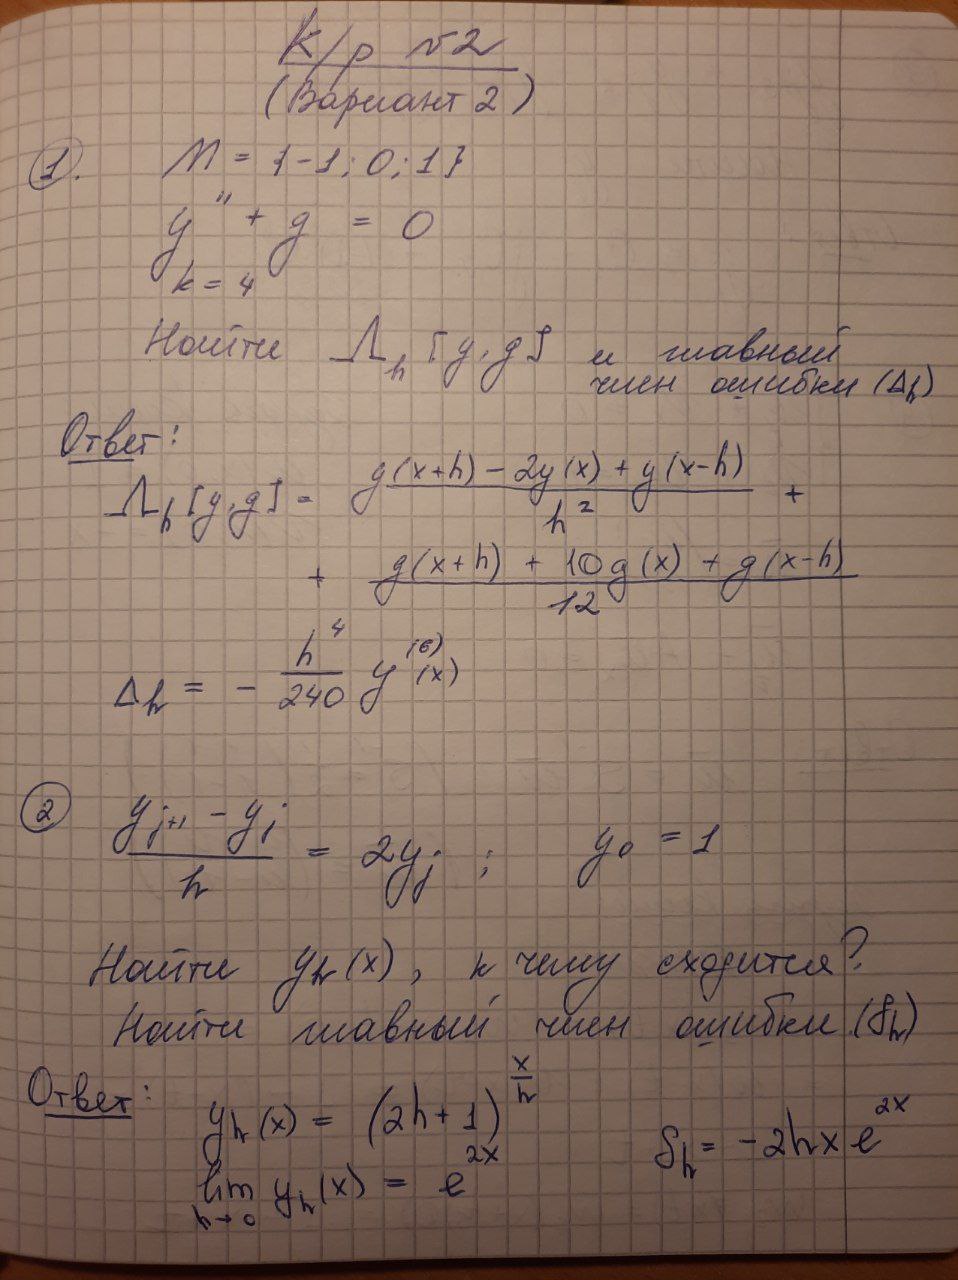 К/р №2
(Вариант 2)
1. M = {-1; 0; 1}
y'' + g = 0
k = 4
Найти Λ_h [y, g] и главный
член ошибки (Δ_h)
Ответ:
Λ_h [y, g] = \frac{y(x+h) - 2y(x) + y(x-h)}{h^2} +
+ \frac{g(x+h) + 10g(x) + g(x-h)}{12}
Δ_h = - \frac{h^4}{240} y^{(6)}(x)
2 \frac{y_{j+1} - y_j}{h} = 2y_j ; y_0 = 1
Найти y_h(x), к чему сходится?
Найти главный член ошибки (δ_h)
Ответ:
y_h(x) = (2h+1)^{\frac{x}{h}} δ_h = -2hx e^{2x}
\lim_{h→0} y_h(x) = e^{2x}